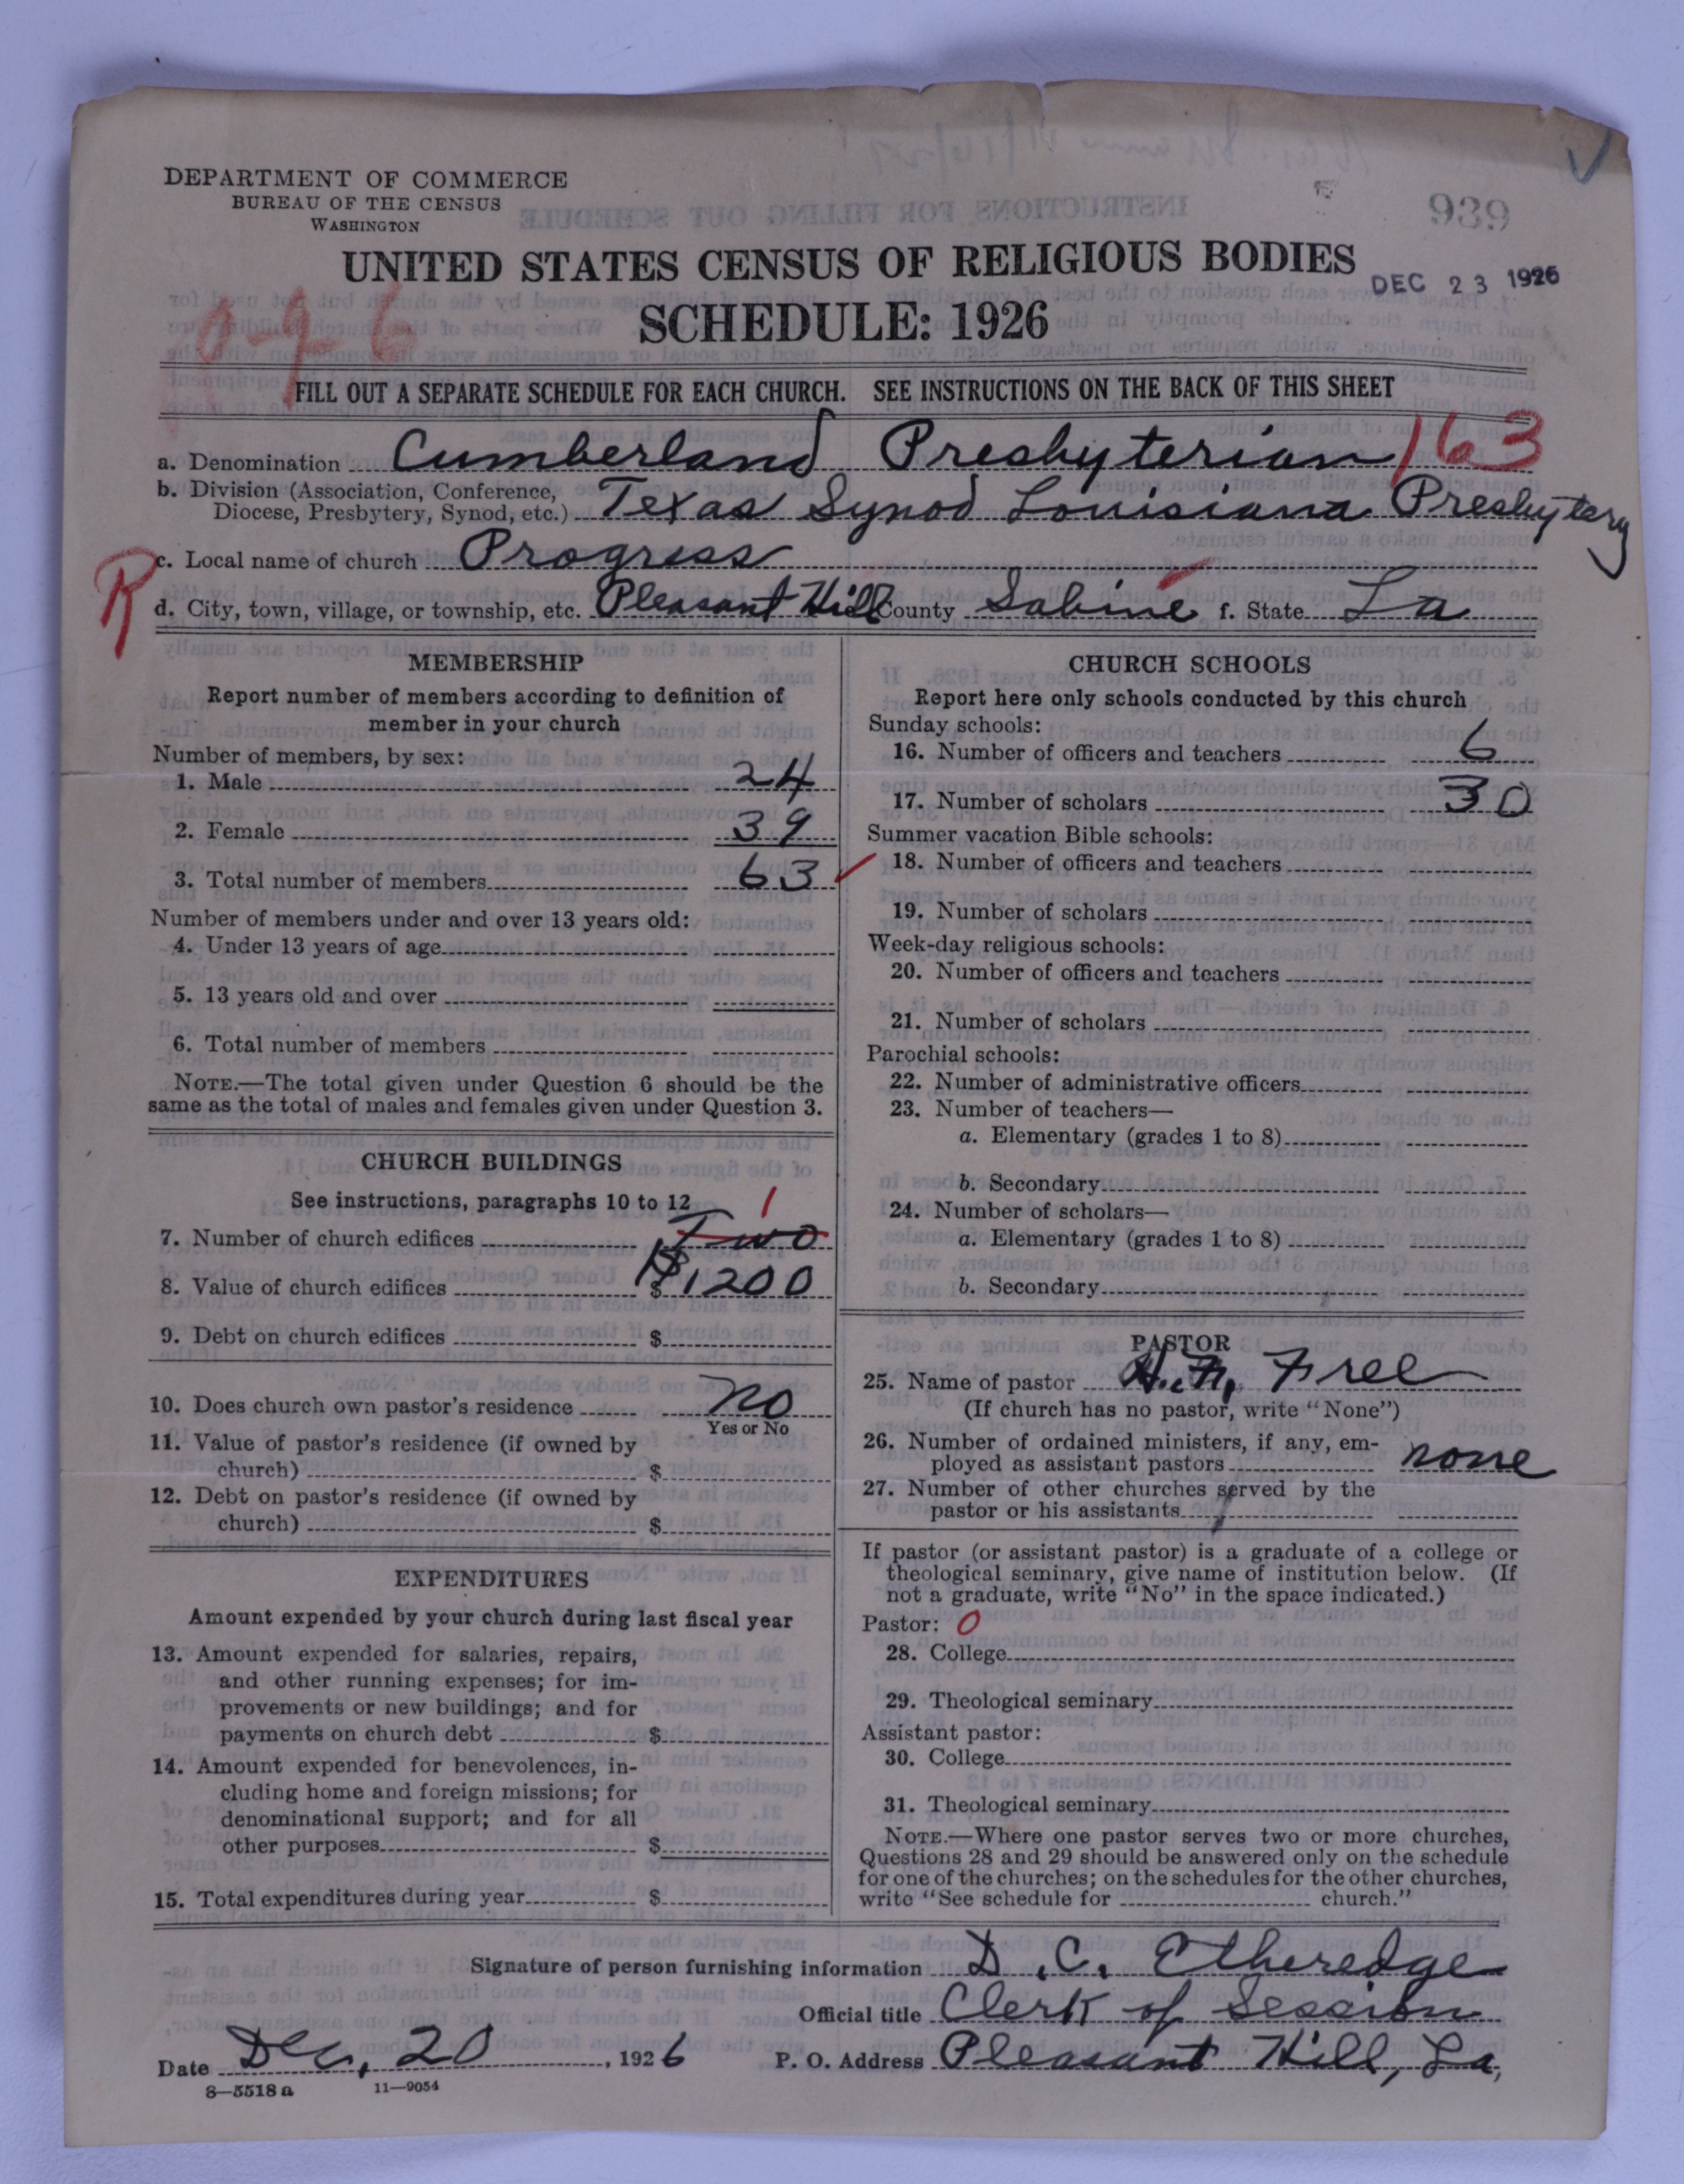 939
DEPARTMENT OF COMMERCE
BUREAU OF THE CENSUS
WASHINGTON
UNITED STATES CENSUS OF RELIGIOUS BODIES
DEC 23 1926
SCHEDULE: 1926
0-96
FILL OUT A SEPARATE SCHEDULE FOR EACH CHURCH. SEE INSTRUCTIONS ON THE BACK OF THIS SHEET
a. Denomination Cumberland Presbyterian 163
b. Division (Association, Conference, Diocese, Presbytery, Synod, etc.) Texas Synod Louisiana Presbytery
R
c. Local name of church Progress
d. City, town, village, or township, etc. Pleasant Hill County Sabine f. State La
MEMBERSHIP
Report number of members according to definition of
member in your church
Number of members, by sex:
1. Male 24
2. Female 39
3. Total number of members 63
Number of members under and over 13 years old:
4. Under 13 years of age
5. 13 years old and over
6. Total number of members
NOTE.—The total given under Question 6 should be the
same as the total of males and females given under Question 3.
CHURCH BUILDINGS
See instructions, paragraphs 10 to 12
7. Number of church edifices Two 1
8. Value of church edifices $ $1200
9. Debt on church edifices $
10. Does church own pastor's residence No
Yes or No
11. Value of pastor's residence (if owned by
church) $
12. Debt on pastor's residence (if owned by
church) $
EXPENDITURES
Amount expended by your church during last fiscal year
13. Amount expended for salaries, repairs,
and other running expenses; for im-
provements or new buildings; and for
payments on church debt $
14. Amount expended for benevolences, in-
cluding home and foreign missions; for
denominational support; and for all
other purposes $
15. Total expenditures during year $
CHURCH SCHOOLS
Report here only schools conducted by this church
Sunday schools:
16. Number of officers and teachers 6
17. Number of scholars 30
Summer vacation Bible schools:
18. Number of officers and teachers
19. Number of scholars
Week-day religious schools:
20. Number of officers and teachers
21. Number of scholars
Parochial schools:
22. Number of administrative officers
23. Number of teachers—
a. Elementary (grades 1 to 8)
b. Secondary
24. Number of scholars—
a. Elementary (grades 1 to 8)
b. Secondary
PASTOR
25. Name of pastor Free
(If church has no pastor, write "None")
26. Number of ordained ministers, if any, em-
ployed as assistant pastors none
27. Number of other churches served by the
pastor or his assistants
If pastor (or assistant pastor) is a graduate of a college or
theological seminary, give name of institution below. (If
not a graduate, write "No" in the space indicated.)
Pastor: 0
28. College
29. Theological seminary
Assistant pastor:
30. College
31. Theological seminary
NOTE.—Where one pastor serves two or more churches,
Questions 28 and 29 should be answered only on the schedule
for one of the churches; on the schedules for the other churches,
write "See schedule for church."
Signature of person furnishing information D. C. Etheredge
Official title Clerk of Session
Date Dec, 20, 1926 P. O. Address Pleasant Hill, La,
8—5518 a 11—9054